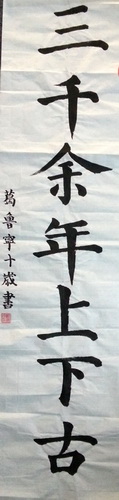 三千余年上下古
葛鲁宁十岁书